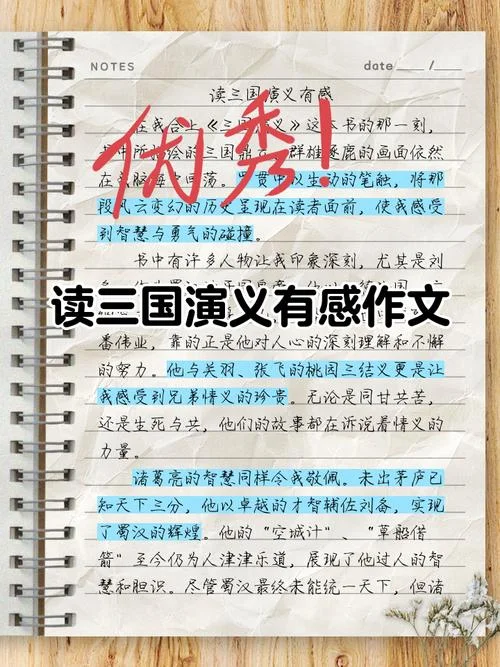 NOTES date / 
读三国演义有感
在我合上《三国演义》这本书的那一刻，
优秀！
书中所描绘的三国鼎立、群雄逐鹿的画面依然
在我脑海中回荡。罗贯中以生动的笔触，将那
段风云变幻的历史呈现在读者面前，使我感受
到智慧与勇气的碰撞。
书中有许多人物让我印象深刻，尤其是刘
读三国演义有感作文
番伟业，靠的正是他对人心的深刻理解和不懈
的努力。他与关羽、张飞的桃园三结义更是让
我感受到兄弟情义的珍贵。无论是同甘共苦，
还是生死与共，他们的故事都在诉说着情义的
力量。
诸葛亮的智慧同样令我敬佩。未出茅庐已
知天下三分，他以卓越的才智辅佐刘备，实现
了蜀汉的辉煌。他的“空城计”、“草船借
箭”至今仍为人津津乐道，展现了他过人的智
慧和胆识。尽管蜀汉最终未能统一天下，但诸